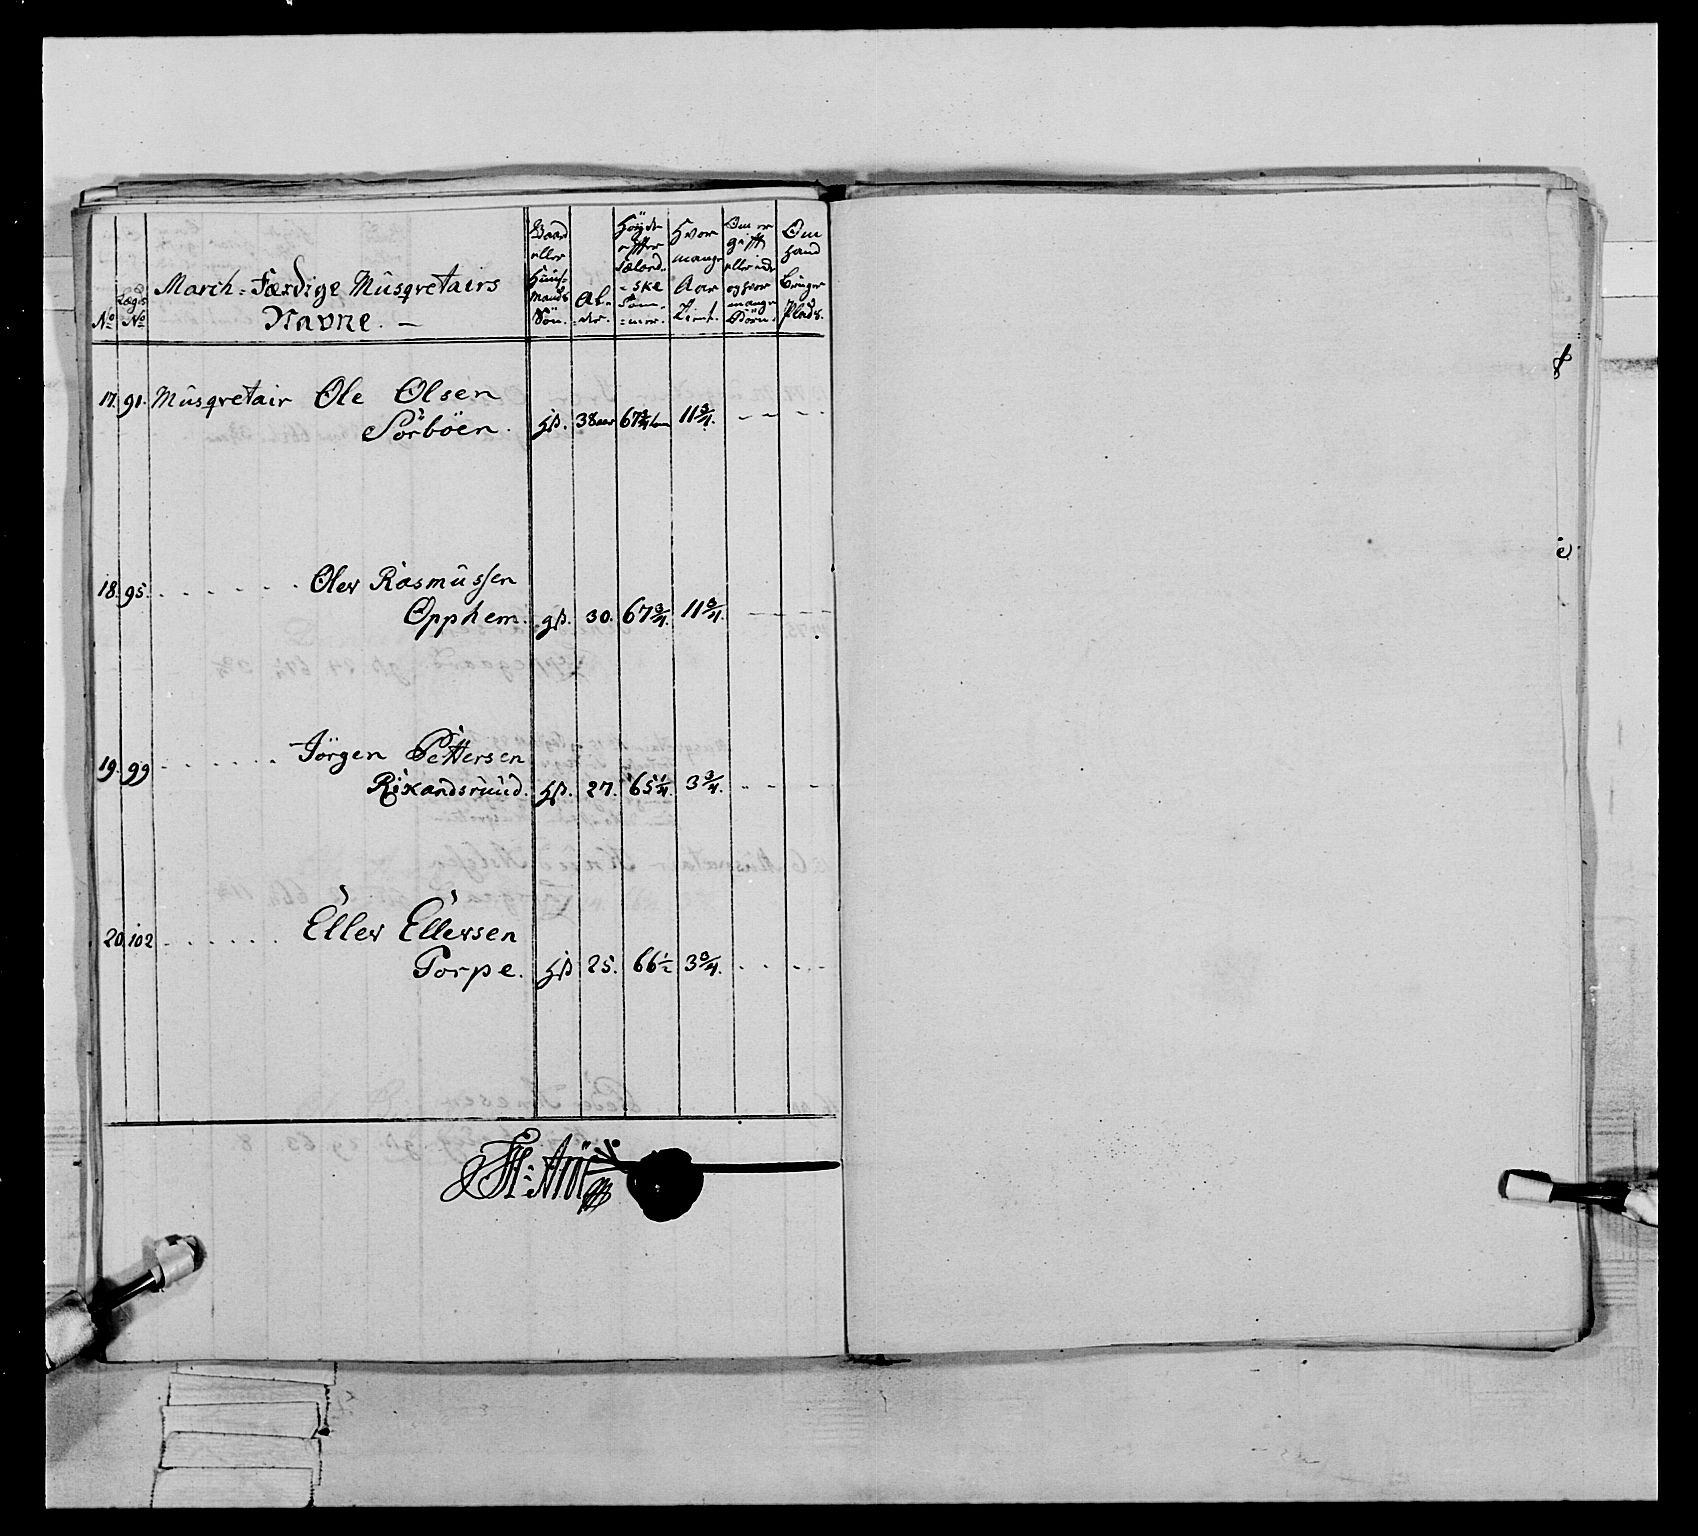 No
Lægds No
March-Færdige Musqvetairs
Navne. -
Gaard eller Huus-Mands Søn.
Al-der.
Høyde effter Sælands-ske Tom-mer.
Hvor mange Aar Tient.
Om er gifft eller ede og hvor mange Børn.
Om hand bruger Plads.
17. 91. Musqvetair Ole Olsen
Sörböen. hß. 38 aar 67 3/4 tom 11 3/4. - - - -
18. 95. . . . . . . Olev Rasmussen
Opphem. gß. 30. 67 3/4. 11 3/4. - - - -
19. 99 . . . . . . Jörgen Pettersen
Rixandsruud. hß. 27. 65 1/4. 3 3/4. - - - -
20. 102 . . . . . . Ellev Ellevsen
Torpe. hß 25. 66 1/2 3 3/4. . . . . .